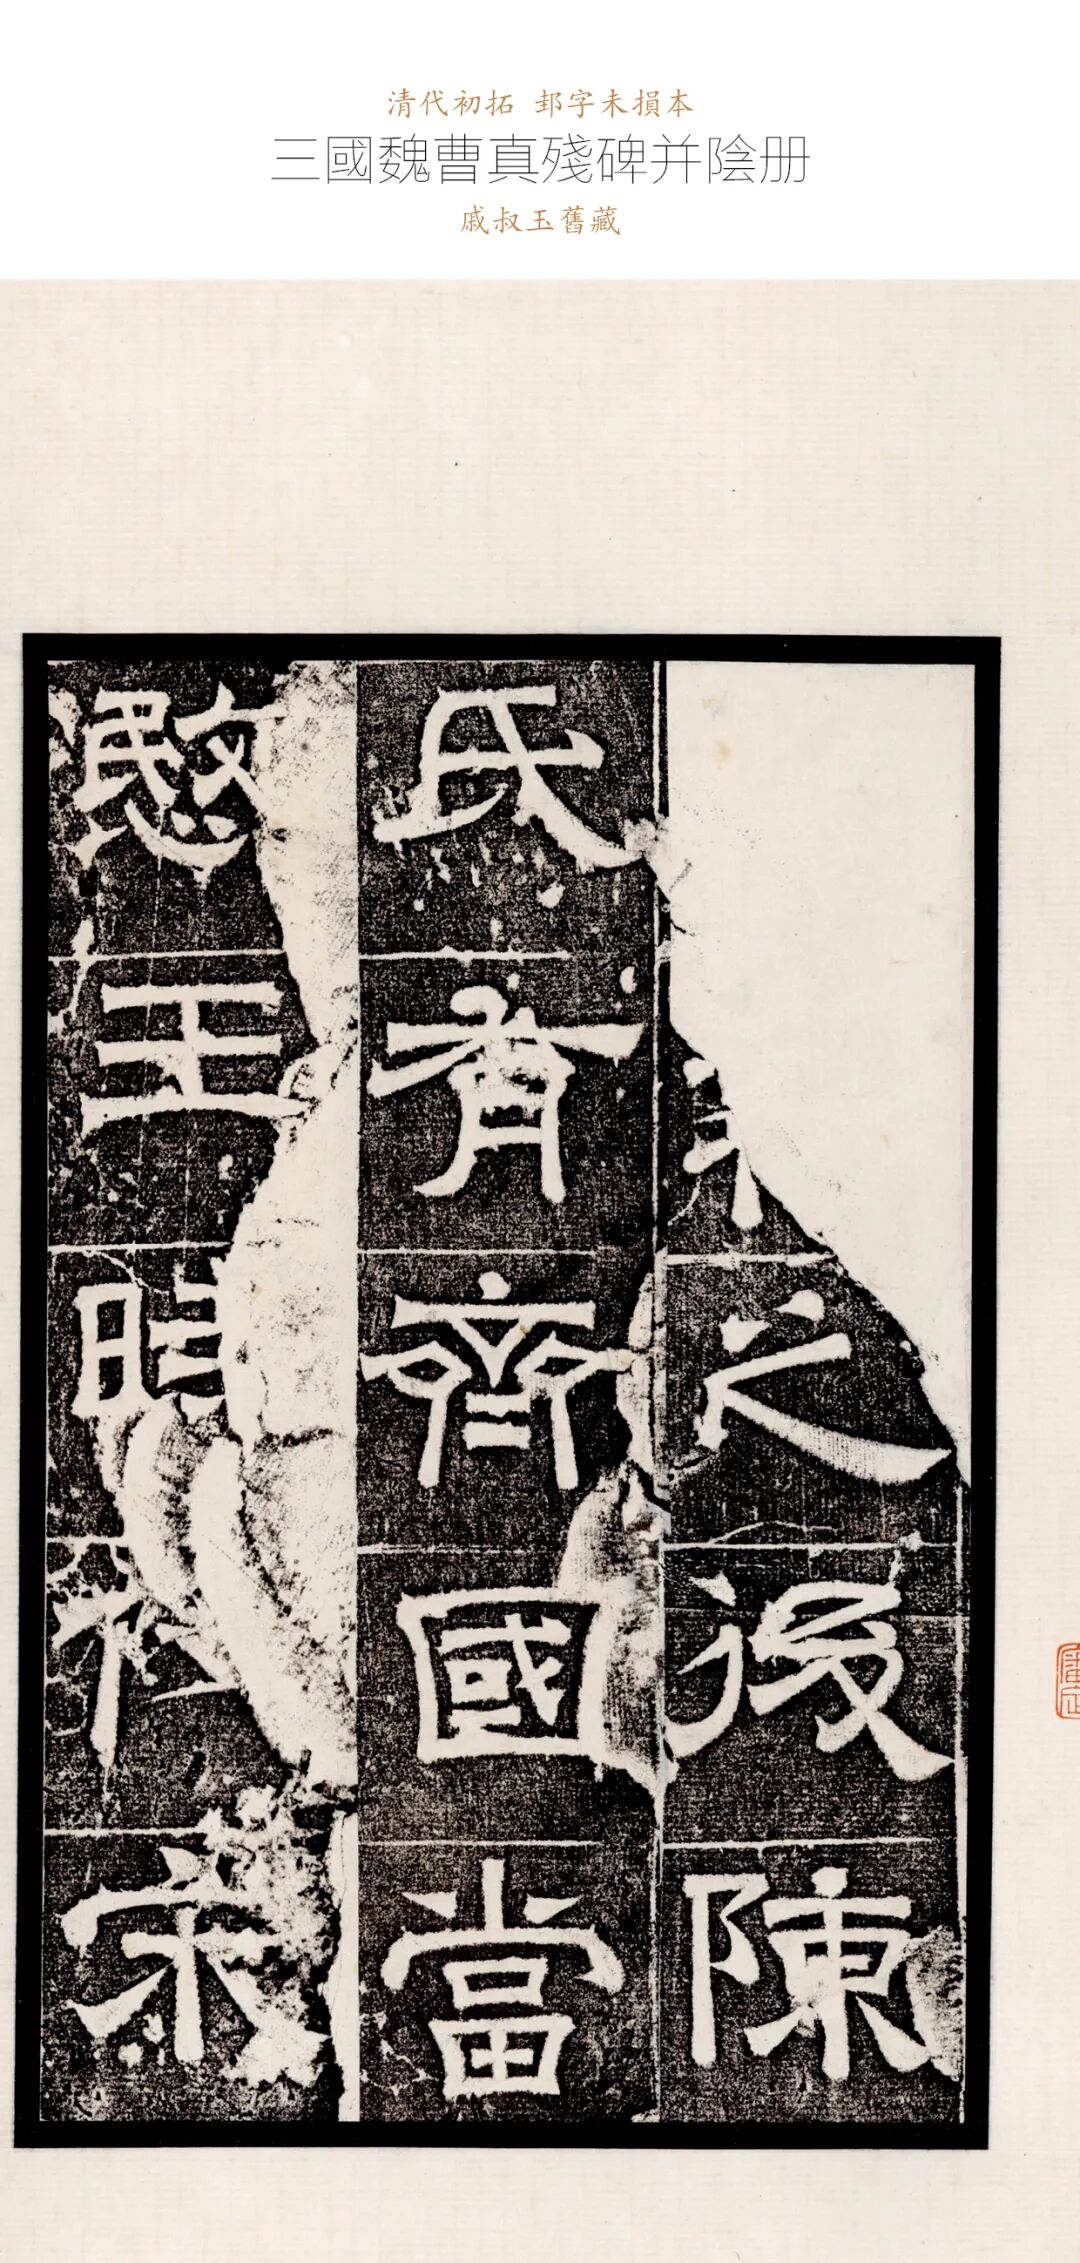 清代初拓 邽字未損本
三國魏曹真殘碑并陰册
戚叔玉舊藏
之後陳
氏有齊國當
慜王時宋